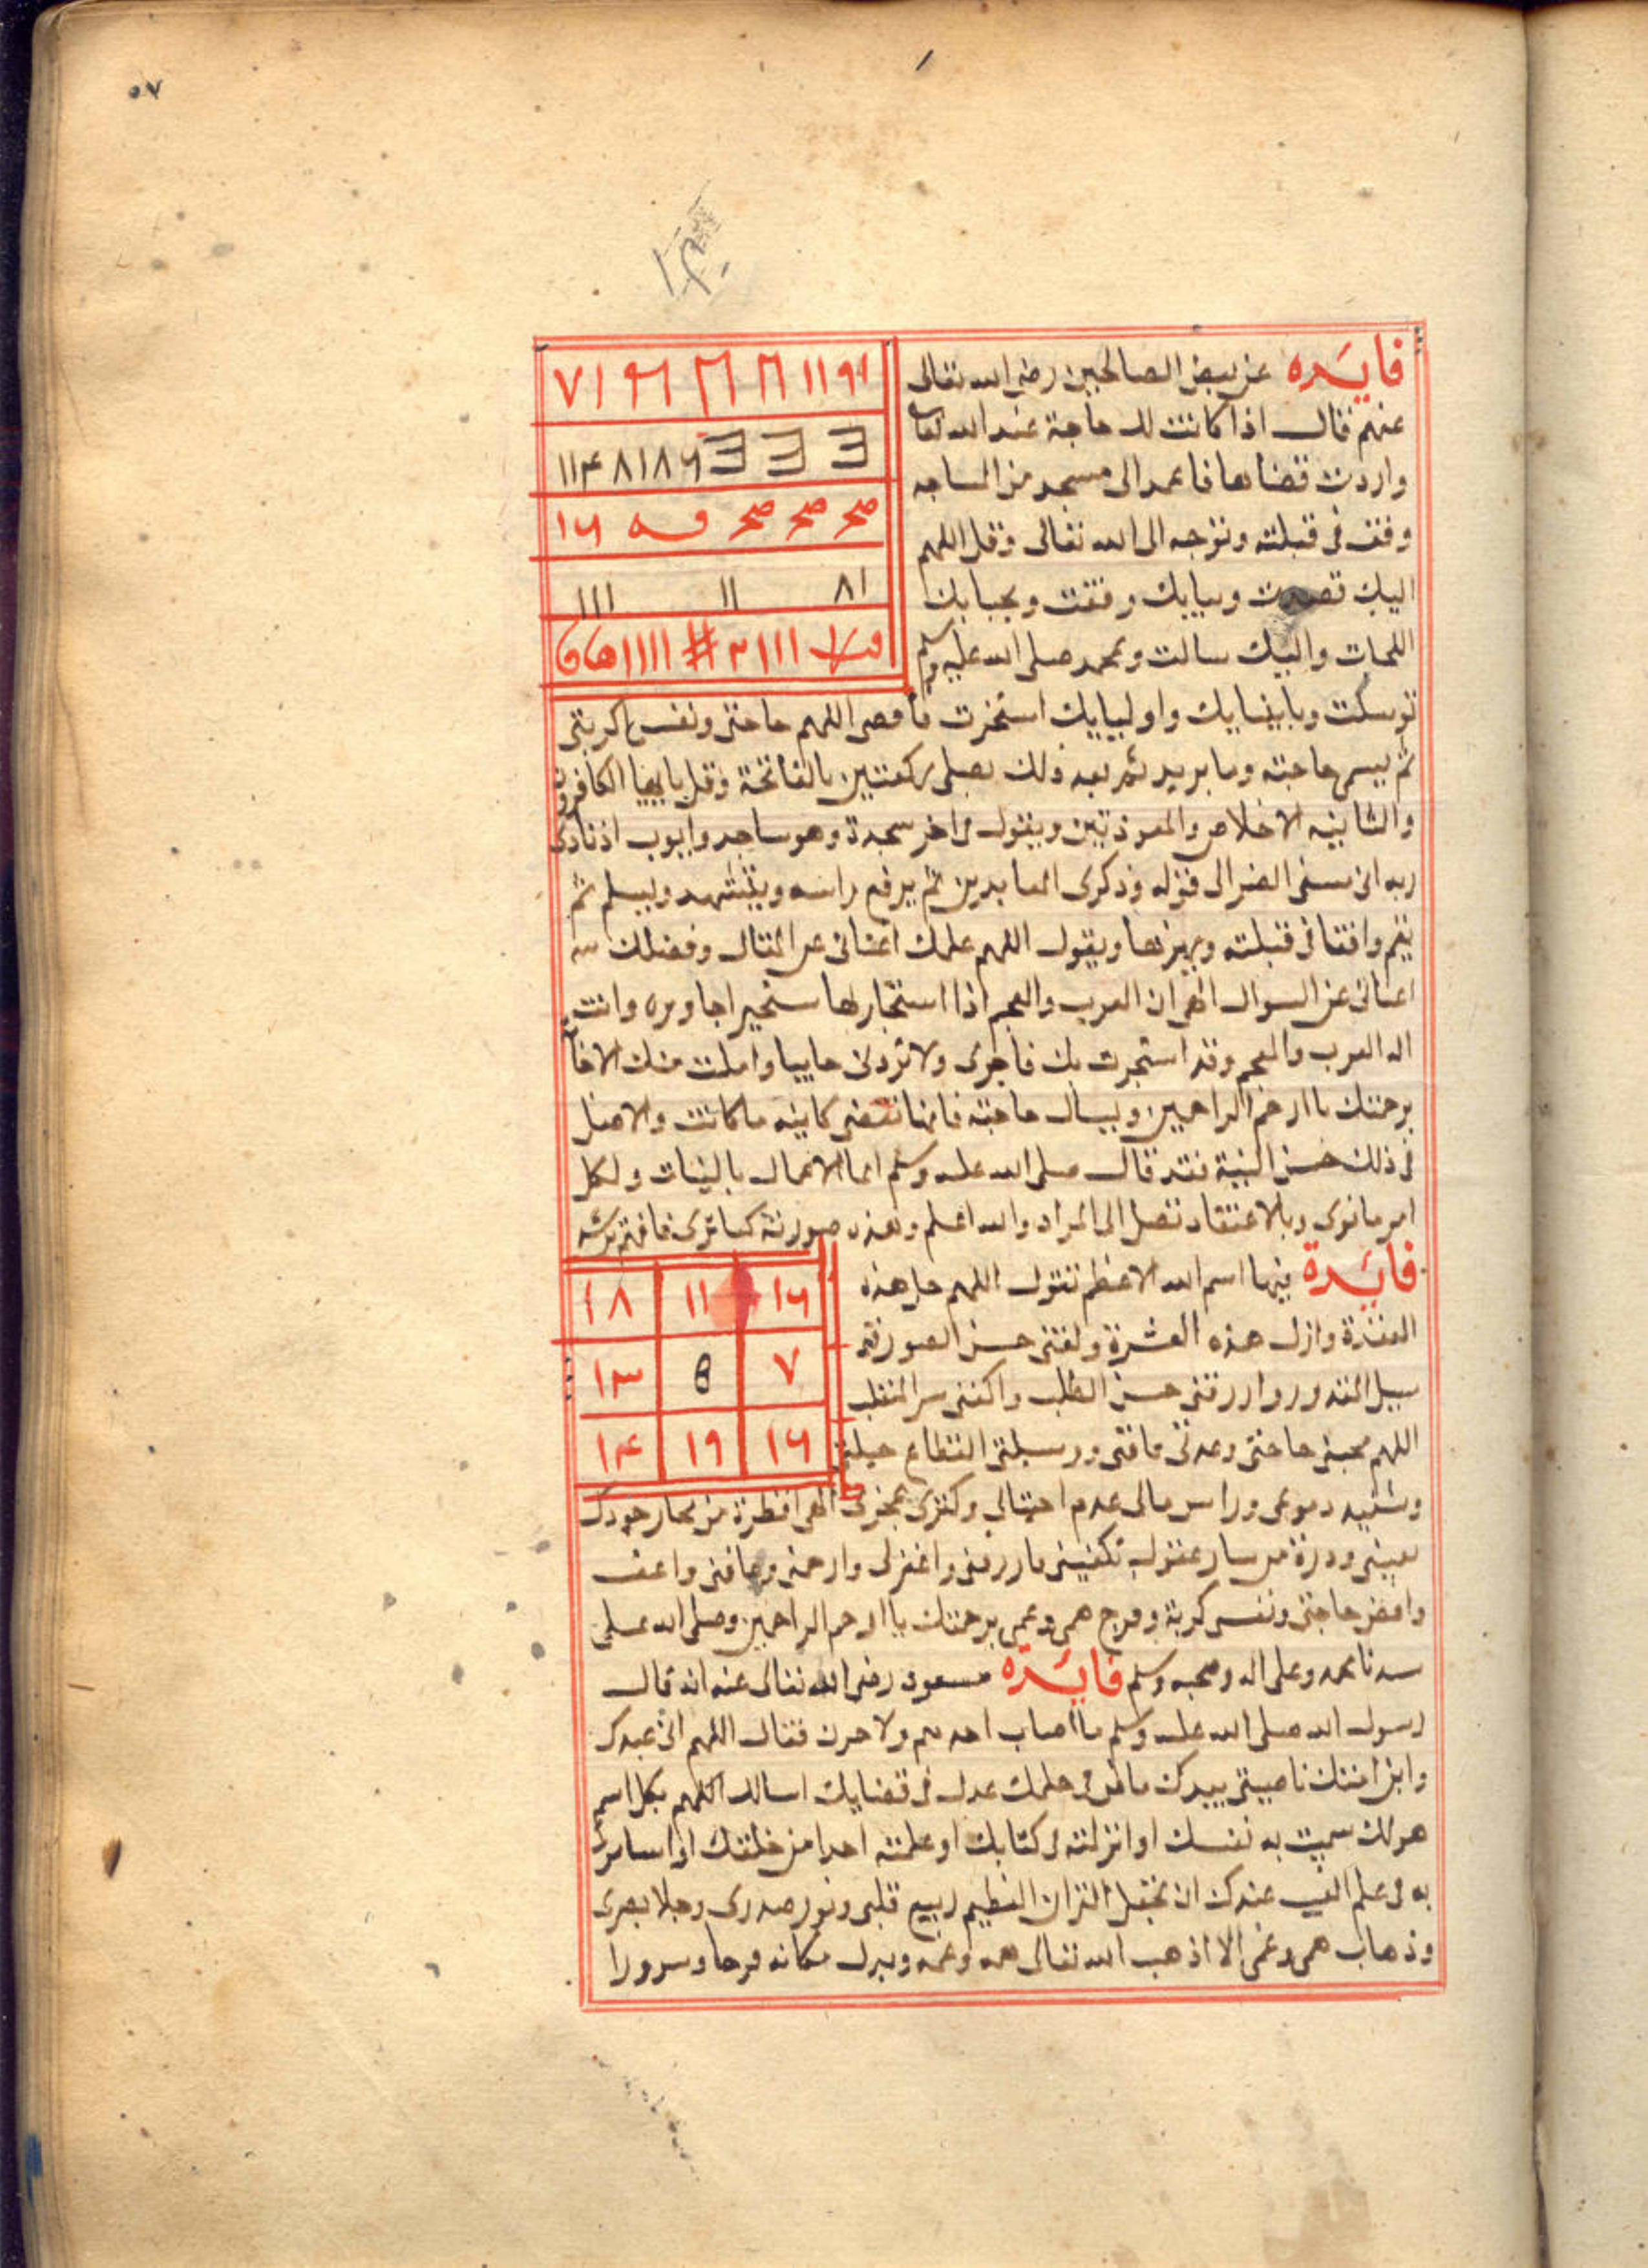 ٥٧
فايده عن بعض الصالحين رضي الله تعالى
عنهم قال اذا كانت لك حاجة عند الله تعالى
واردت قضاها فاعمد الى مسجد من المساجد
وقف في قبلته وتوجه الى الله تعالى وقل اللهم
اليك قصدت وببابك وقفت وبجنابك
التجات واليك سالت وبمحمد صلى الله عليه وسلم
توسلت وبانبيايك واوليايك استجرت فاقض اللهم حاجتي ونفس كربتي
ثم يسمي حاجته وما يريد ثم بعد ذلك يصلي ركعتين بالفاتحة وقل يا ايها الكافرون
والثانيه الاخلاص والمعوذتين ويقول في اخر سجدة وهو ساجد وايوب اذ نادى
ربه اني مسني الضر الى قوله وذكرى للعابدين ثم يرفع راسه ويتشهد ويسلم ثم
يقم واقفا في قبلته ويقول اللهم علمك اغناني عن المقال وفضلك
اغناني عن السوال الهي ان العرب والعجم اذا استجار بها مستجير اجاروه وانت
اله العرب والعجم وقد استجرت بك فاجرني ولا تردني خايبا واملت منك
برحمتك يا ارحم الراحمين ويسال حاجته فانها تقضى كاينه ما كانت والاصل
في ذلك حسن النية فقد قال صلى الله عليه وسلم انما الاعمال بالنيات ولكل
امر ما نوى وبالاعتقاد تصل الى المراد والله اعلم وهذه صورته كما ترى فافهم ترشد
٧١ ٩٦ ١١٩١
١١٤٨١٨٦
صح صح صح ١٦
٨١ ١١ ١١١
فايدة فيها اسم الله الاعظم تقول اللهم حل هذه
العقدة وازل هذه العسرة ولقني حسن
المقدور وارزقني حسن الطلب واكفني سو المنقلب
اللهم حاجتي وعدتي فاقتي ووسيلتي انقطاع حيلتي
دموعي وراس مالي عدم احتيالي وكنزي عجزي الهي قطرة من بحار جودك
تغنيني وذرة من عفوك تكفيني فارزقني واغفر لي وارحمني وعافني واعف
واقض حاجتي ونفس كربة وفرج همي وغمي برحمتك يا ارحم الراحمين وصلى الله على
١٦ ١١ ١٨
٧ ١٣
١٦ ١٩ ١٤
سيدنا محمد وعلى اله وصحبه وسلم فايده مسعود رضي الله تعالى عنه انه قال
رسول الله صلى الله عليه وسلم ما اصاب احد هم ولا حزن فقال اللهم اني عبدك
وابن امتك ناصيتي بيدك ماض في حكمك عدل في قضايك اسالك اللهم بكل اسم
هو لك سميت به نفسك او انزلته في كتابك او علمته احدا من خلقك او استاثرت
به في علم الغيب عندك ان تجعل القران العظيم ربيع قلبي ونور صدري وجلا بصري
وذهاب همي وغمي الا اذهب الله تعالى همه وغمه وبدل مكانه فرحا وسرورا